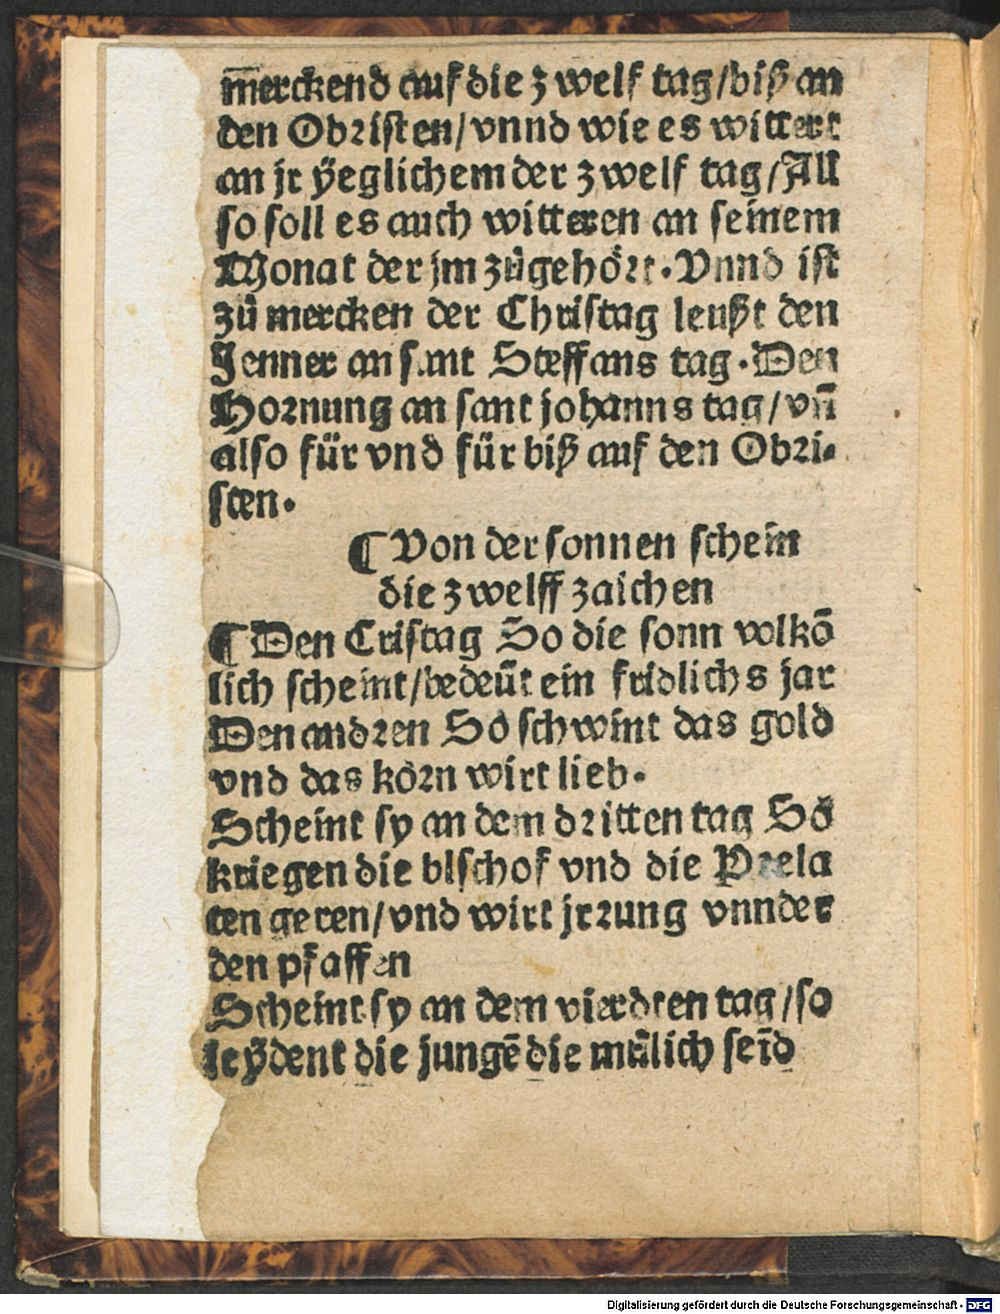 m̄erckend auf die zwelf tag/biß an
den Obristen/vnnd wie es wittert
an jr ÿeglichem der zwelf tag/All
so soll es auch witteren an seinem
Monat der jm zůgehört. Vnnd ist
zů mercken der Christag leußt den
Jenner an sant Steffans tag. Den
Hornung an sant johanns tag/vn̄
also für vnd für biß auf den Obri-
sten.
¶ Von der sonnen schein
die zwelff zaichen
¶ Den Cristag So die sonn volkō
lich scheint/bedeüt ein fridlichs jar
Den andren So schwint das gold
vnd das korn wirt lieb.
Scheint sy an dem dritten tag So
kriegen die bischof vnd die Prela
ten geren/vnd wirt jrrung vnnder
den pfaffen
Scheint sy an dem vierdten tag/so
leÿdent die jungē die mülich seīd
Digitalisierung gefördert durch die Deutsche Forschungsgemeinschaft - DFG